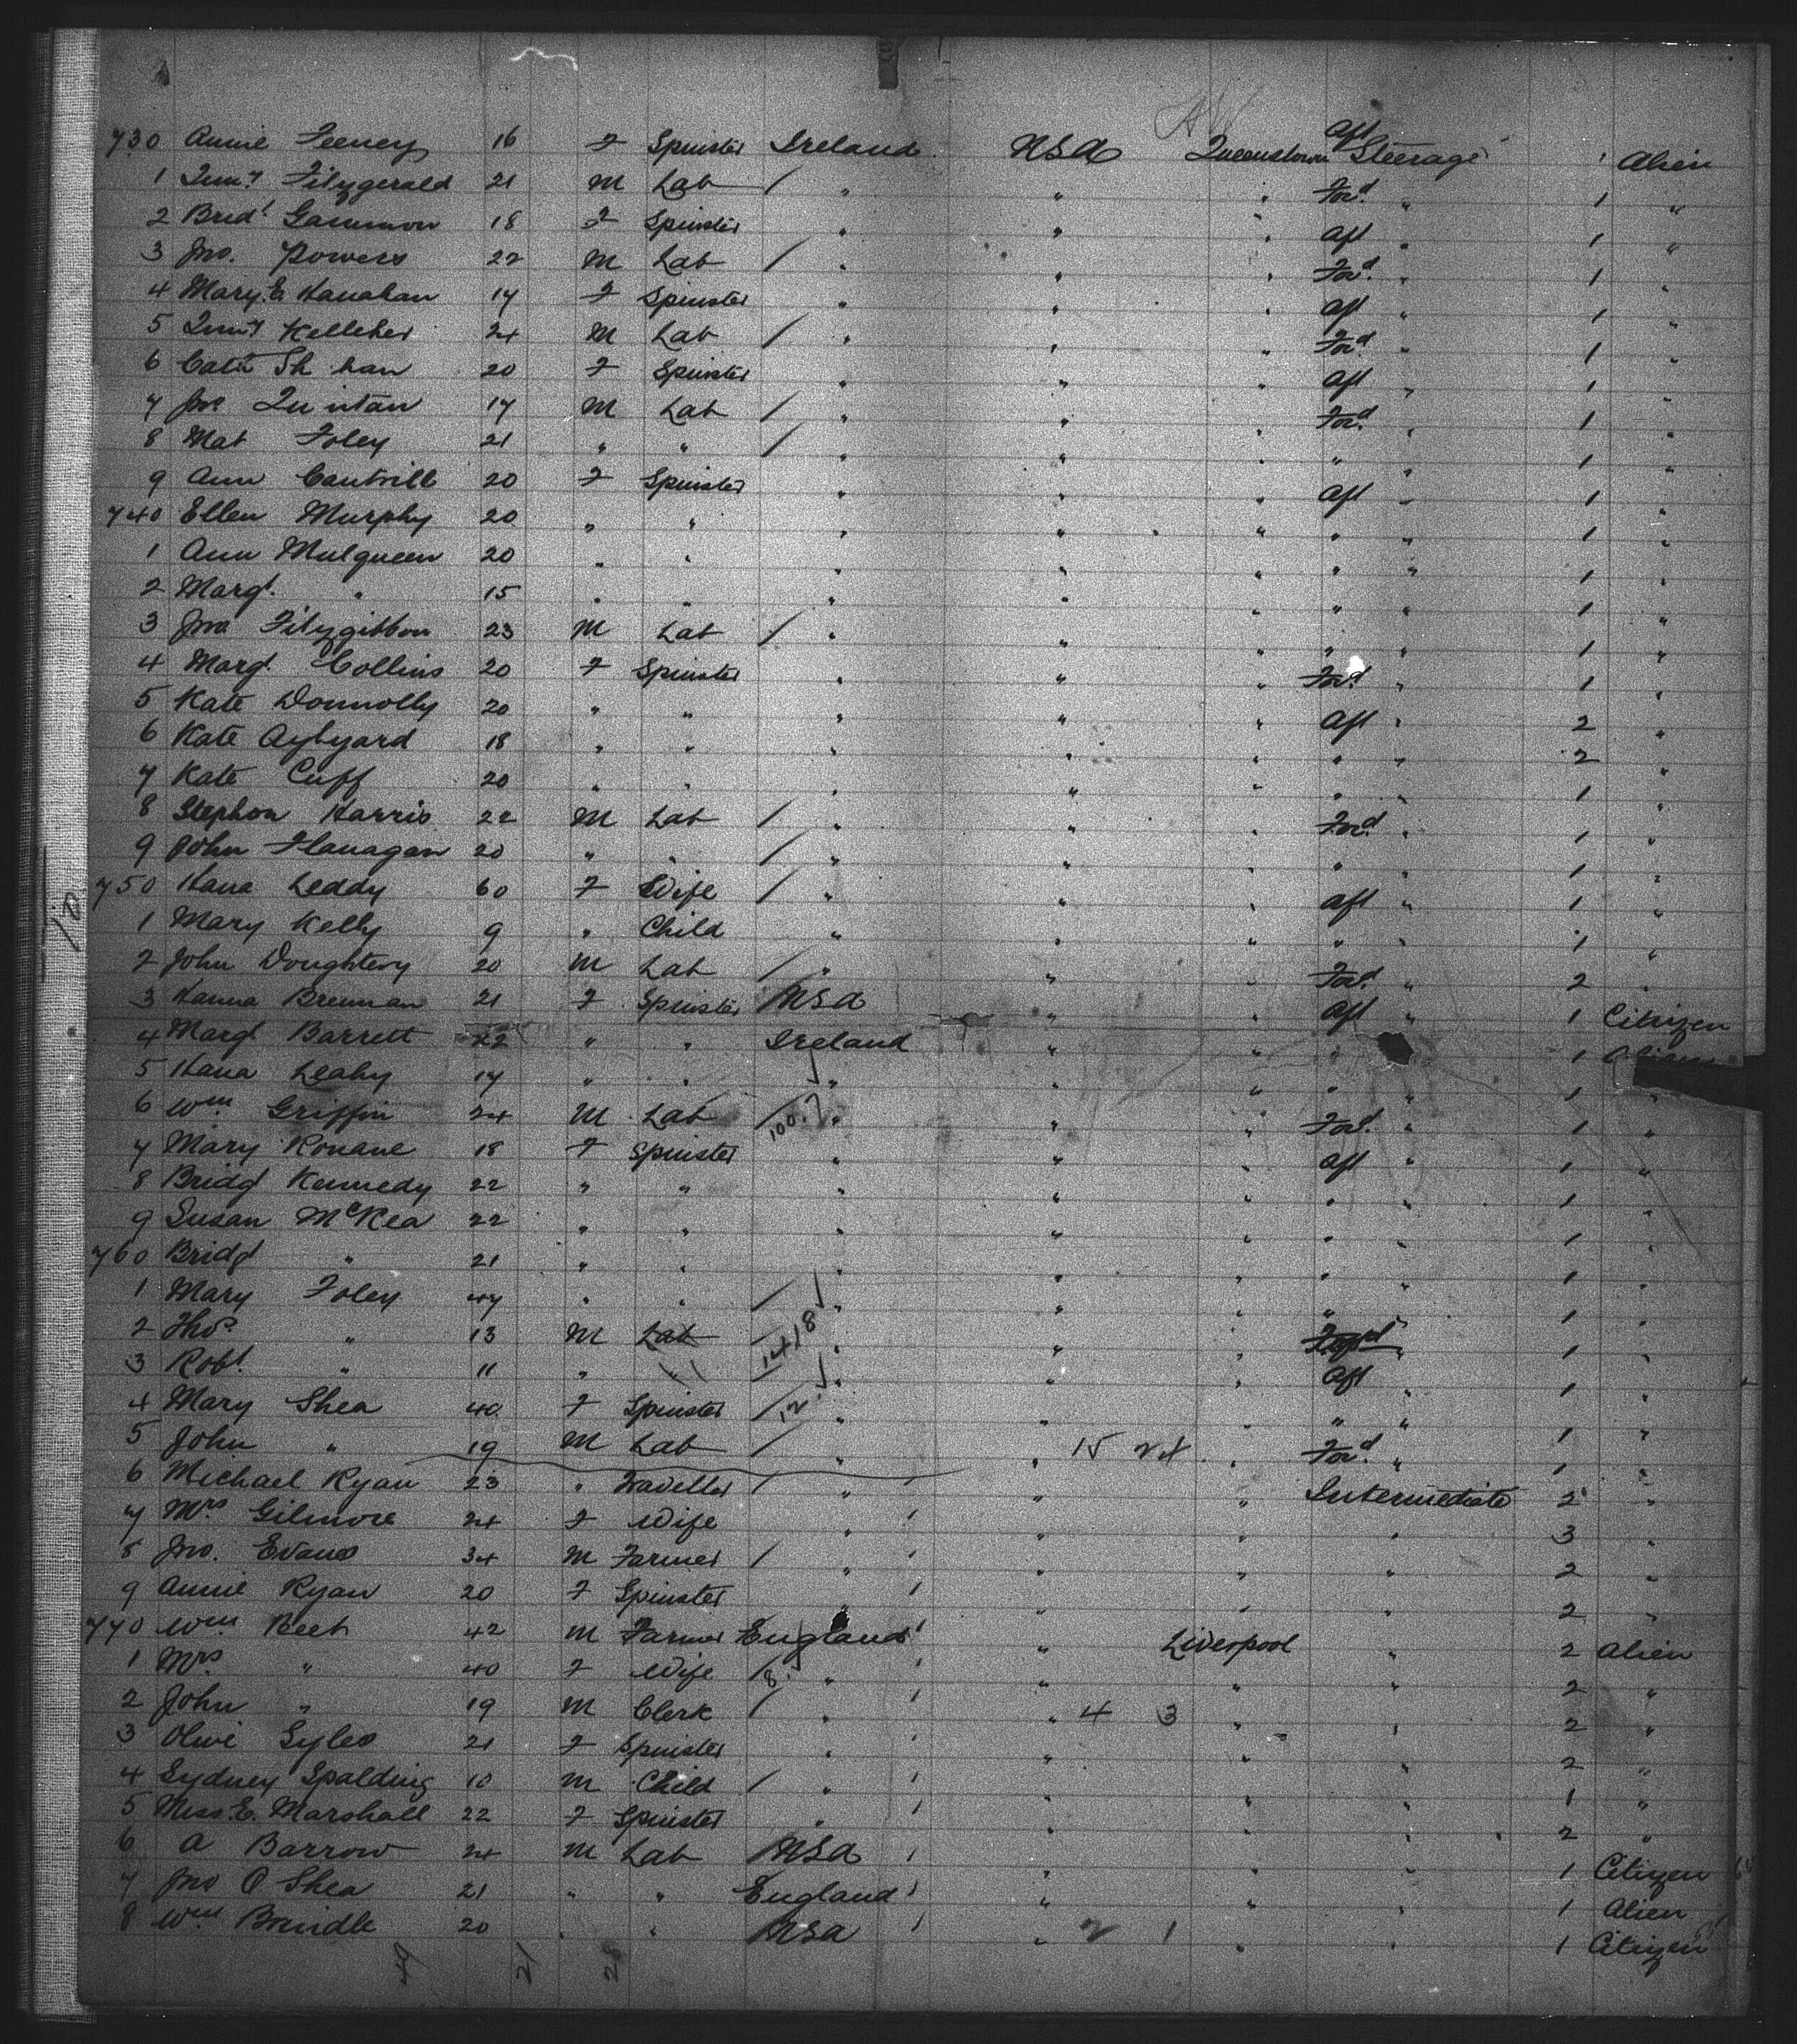 730 Annie Feeney 16 F Spinster Ireland USA Queenstown Aft Steerage 1 Alien
1 Timy Fitzgerald 21 M Lab / " " " Ford " 1 "
2 Bridt Gammon 18 F Spinster " " " Aft " 1 "
3 Jno. Powers 22 M Lab / " " " Ford " 1 "
4 Mary E Hanahan 17 F Spinster " " " Aft " 1 "
5 Timy Kelleher 24 M Lab / " " " Ford " 1 "
6 Cath Sh han 20 F Spinster " " " Aft " 1 "
7 Jno Quintan 17 M Lab / " " " Ford " 1 "
8 Mat Foley 21 " " / " " " " " 1 "
9 Ann Cantrill 20 F Spinster " " " Aft " 1 "
740 Ellen Murphy 20 " " " " " " " 1 "
1 Ann Mulqueen 20 " " " " " " " 1 "
2 Margt. " 15 " " " " " " " 1 "
3 Jno Fitzgibbon 23 M Lab / " " " " " 1 "
4 Margt. Collins 20 F Spinster " " " Ford " 1 "
5 Kate Donnolly 20 " " " " " Aft " 2 "
6 Kate 18 " " " " " " " 2 "
7 Kate Cuff 20 " " " " " " " 1 "
8 Stephen Harris 22 M Lab / " " " Ford " 1 "
9 John Flanagan 20 " " / " " " " " 1 "
750 Hana Leddy 60 F Wife / " " " Aft " 1 "
1 Mary Kelly 9 " Child " " " " " 1 "
2 John Doughtery 20 M Lab / " " " Ford " 2 "
3 Hanna Brennan 21 F Spinster USA " " Aft " 1 Citizen
4 Margt Barrett 22 " " Ireland " " " 1 Alien
5 Hana Leahy 17 " " " " " " 1 "
6 Wm Griffin 24 M Lab / 100. " " " Ford. " 1 "
7 Mary Ronane 18 F Spinster " " " Aft " 1 "
8 Bridgt Kennedy 22 " " " " " " " 1 "
9 Susan McKea 22 " " " " " " " 1 "
760 Bridgt " 21 " " " " " " " 1 "
1 Mary Foley 47 " " / " " " " " 1 "
2 Thos. " 13 M Lab / 14/8 " " " Ford " 1 "
3 Robt. " 11 " " / " " " Aft " 1 "
4 Mary Shea 40 F Spinster / 12. " " " " " 1 "
5 John " 19 M Lab / " " 15 24 " Ford. " 1 "
6 Michael Ryan 23 " Traveller / " " " Intermediate 2 "
7 Mrs Gilmore 24 F Wife " " " " 3 "
8 Jno. Evans 34 M Farmer / " " " " 2 "
9 Annie Ryan 20 F Spinster " " " " 2 "
770 Wm Beet 42 M Farmer England " Liverpool " 2 Alien
1 Mrs " 40 F Wife / 8. " " " " 2 "
2 John " 19 M Clerk / " " 4 3 " " 2 "
3 Olive Syles 21 F Spinster " " " " 2 "
4 Sydney Spalding 10 M Child / " " " " 1 "
5 Miss. E. Marshall 22 F Spinster " " " " 2 "
6 A Barrow 24 M Lab USA " " " 1 Citizen
7 Jno O Shea 21 " " England " " " 1 Alien
8 Wm Brindle 20 " " USA " 2 1 " " 1 Citizen
49 21 28